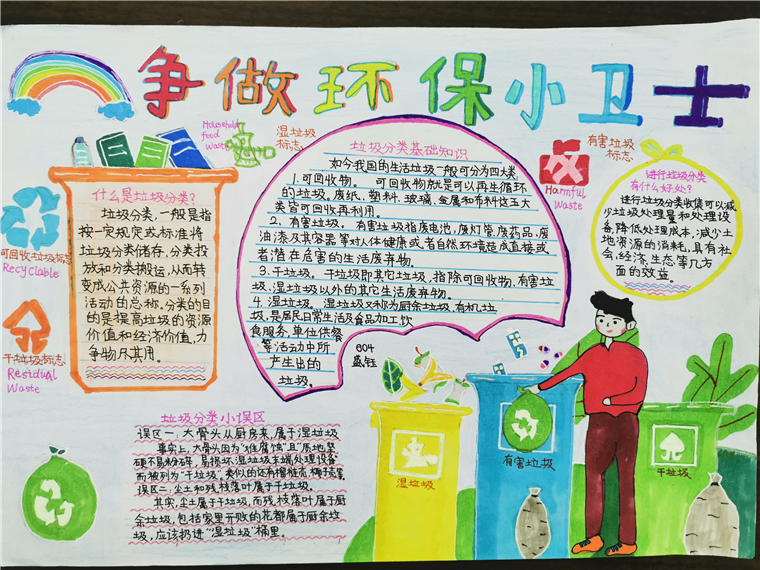 争做环保小卫士
Household
food
Waste
湿垃圾
标志
有害垃圾
标志
Harmful
Waste
可回收垃圾标志
Recyclable
干垃圾标志
Residual
Waste
什么是垃圾分类?
垃圾分类,一般是指
按一定规定或标准将
垃圾分类储存,分类投
放和分类搬运,从而转
变成公共资源的一系列
活动的总称。分类的目
的是提高垃圾的资源
价值和经济价值,力
争物尽其用。
垃圾分类基础知识
如今我国的生活垃圾一般可分为四大类
1.可回收物。 可回收物就是可以再生循环
的垃圾。废纸,塑料,玻璃,金属和布料这五大
类皆可回收再利用。
2.有害垃圾。有害垃圾指废电池,废灯管,废药品,废
油漆及其容器等对人体健康或者自然环境造成直接或
者潜在危害的生活废弃物。
3.干垃圾。干垃圾即其它垃圾,指除可回收物,有害垃
圾,湿垃圾以外的其它生活废弃物。
4.湿垃圾。湿垃圾又称为厨余垃圾,有机垃
圾,是居民日常生活及食品加工饮
食服务,单位供餐
等活动中所
产生出的
垃圾。
604
进行垃圾分类
有什么好处?
进行垃圾分类收集可以减
少垃圾处理量和处理设
备,降低处理成本,减少土
地资源的消耗,具有社
会,经济,生态等几方
面的效益。
垃圾分类小误区
误区一:大骨头从厨房来,属于湿垃圾
事实上,大骨头因为"难腐蚀"且"质地坚
硬不易粉碎,易损坏湿垃圾末端处理设备
而被列为"干垃圾",类似的还有榴梿壳,椰子壳等。
误区二:尘土和残枝落叶属于干垃圾。
其实,尘土属于干垃圾,而残枝落叶属于厨
余垃圾,包括家里开败的花都属于厨余垃
圾,应该扔进"湿垃圾"桶里。
湿垃圾
有害垃圾
干垃圾